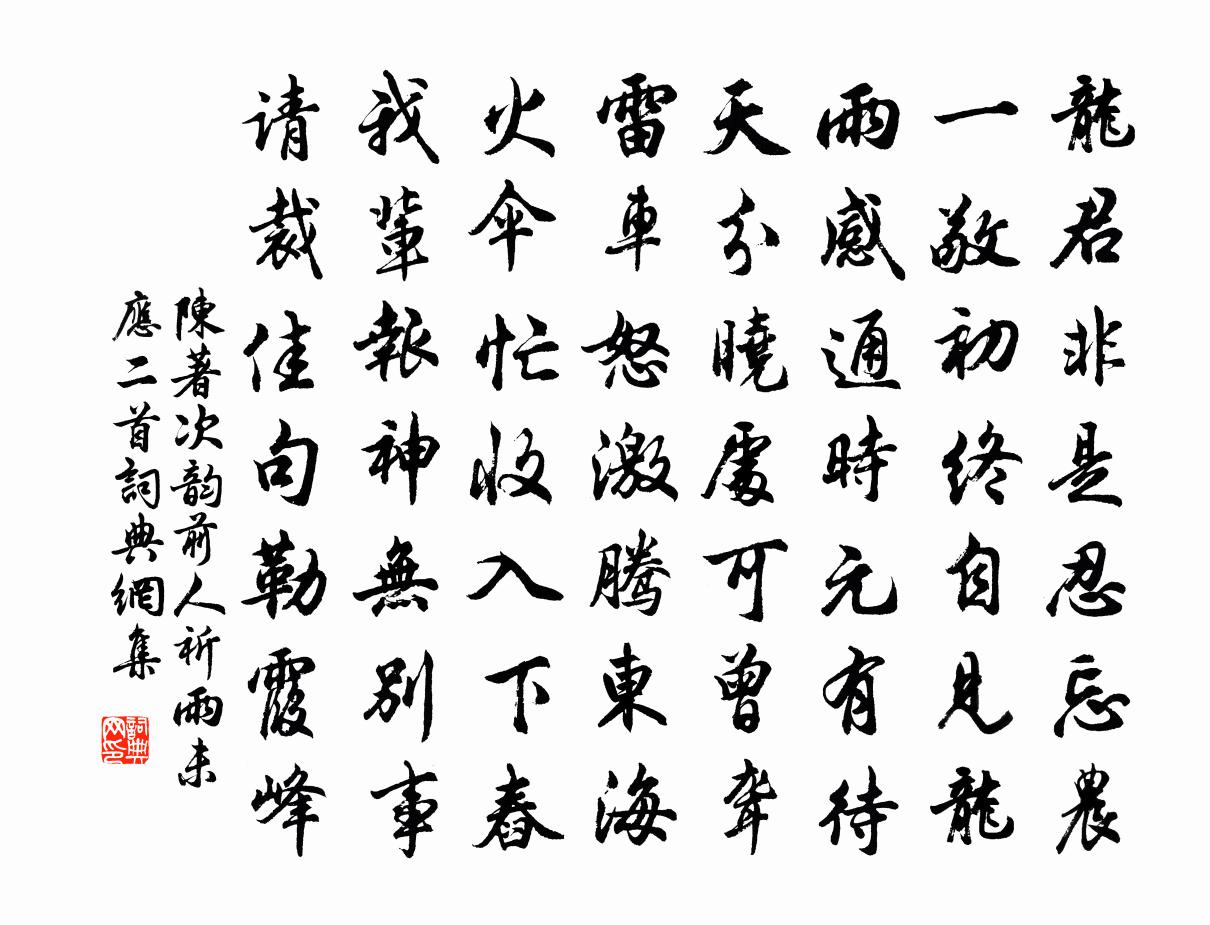 龍君非是忍忘農
一敬初终自見龍
雨感通時元有待
天分曉處可曾聾
雷車怒激騰東海
火伞忙收入下舂
我輩報神無別事
请裁佳句勒霞峰
陳著次韵前人祈雨未
應二首詞典網集
詞典
网印